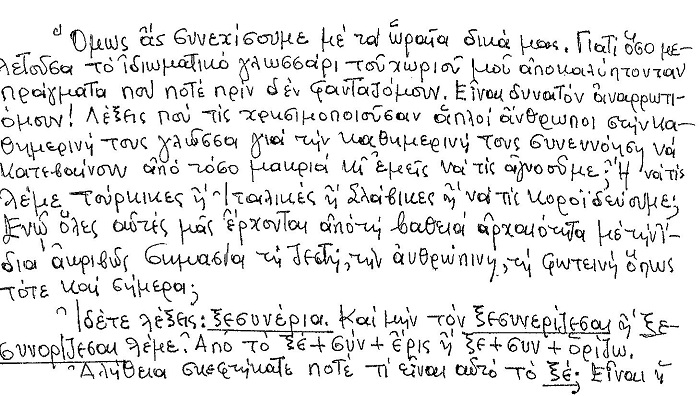 Ὅμως ἄς συνεχίσουμε μέ τά ὡραῖα δικά μας. Γιατί ὅσο με-
λετοῦσα τό ἰδιωματικό γλωσσάρι τοῦ χωριοῦ μου ἀποκαλύπτονταν
πράγματα πού ποτέ πρίν δέν φανταζόμουν. Εἶναι δυνατόν ἀναρρωτι-
όμουν! Λέξεις πού τίς χρησιμοποιοῦσαν ἁπλοί ἄνθρωποι στήν κα-
θημερινή τους γλῶσσα γιά τήν καθημερινή τους συνεννόηση νά
κατεβαίνουν ἀπό τόσο μακριά κι ἐμεῖς νά τίς ἀγνοοῦμε; Ἤ νά τίς
λέμε τούρκικες ἤ Ἰταλικές ἤ Σλάβικες ἤ νά τίς κοροϊδεύουμε;
Ἐνῶ ὅλες αὐτές μᾶς ἔρχονται ἀπό τή βαθειά ἀρχαιότητα μέ τήν ἴ-
δια ἀκριβῶς σημασία τή ζεστή, τήν ἀνθρώπινη, τή φωτεινή ὅπως
τότε καί σήμερα;
Ἰδέτε λέξεις: ξεσυνέρια. Καί μήν τόν ξεσυνερίζεσαι ἤ ξε-
συνορίζεσαι λέμε. Ἀπό τό ξέ + σύν + ἔρις ἤ ξε + συν + ὁρίζω.
Ἀλήθεια σκεφτήκατε ποτέ τί εἶναι αὐτό τό ξέ; Εἶναι ἡ